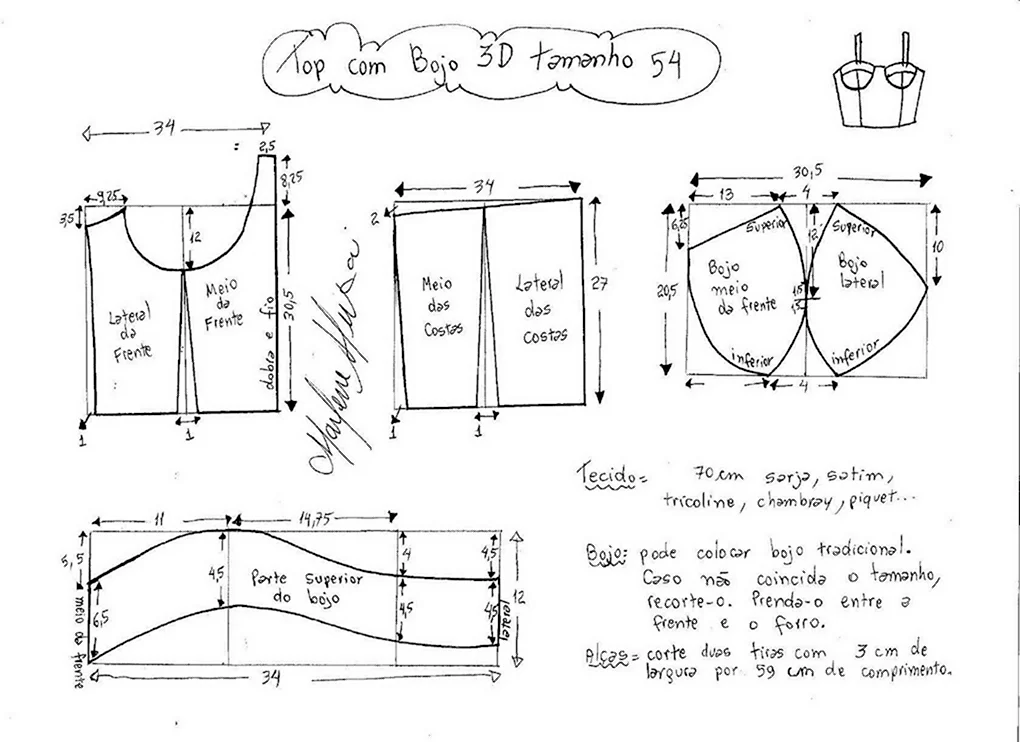 Top com Bojo 3D tamanho 54
34
= 2,5
9,25
8,25
3,5
12
Lateral
da
Frente
Meio
da
Frente
dobra e fio
30,5
1
1
Marlene Mukai
34
2
Meio
das
Costas
Lateral
das
costas
27
1
1
30,5
13
4
6,25
Superior
12
Superior
10
Bojo
meio
da frente
Bojo
lateral
20,5
1,5
1,5
inferior
inferior
4
Tecido= 70cm sarja, satim,
tricoline, chambray, piquet...
Bojo: pode colocar bojo tradicional.
Caso não coincida o tamanho,
recorte-o. Prenda-o entre a
frente e o forro.
Alças= corte duas tiras com 3 cm de
largura por 59 cm de comprimento.
11
14,75
5,5
4,5
4
4,5
Parte Superior
do bojo
6,5
4,5
4,5
12
meio da frente
lateral
34